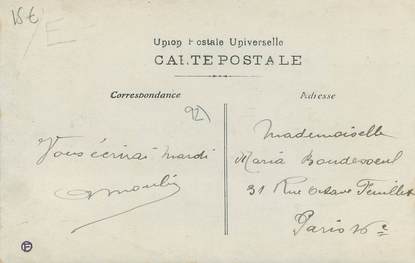 15€
/E
Union Postale Universelle
CARTE POSTALE
Correspondance
Adresse
92)
Vous écrirai mardi
Mademoiselle
Maria
31 Rue Octave Feuillet
Paris 16e